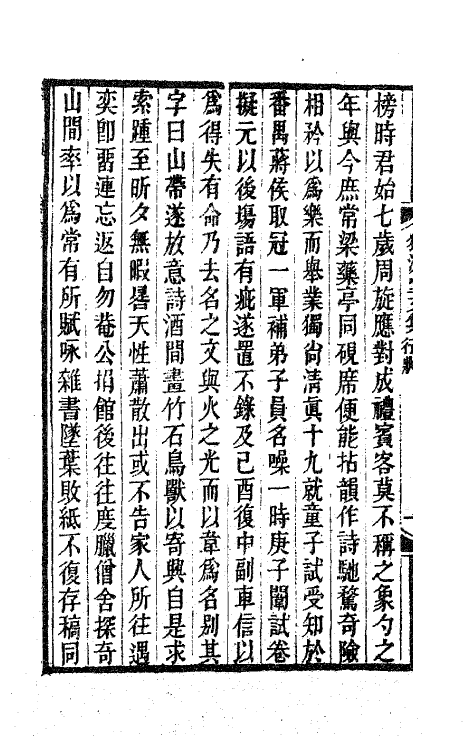 榜時君始七歲周旋應對成禮賓客莫不稱之象勺之
年與今庶常梁藥亭同硯席便能拈韻作詩馳騖奇險
相矜以爲樂而舉業獨尙清眞十九就童子試受知於
番禺蔣侯取冠一軍補弟子員名噪一時庚子闈試卷
擬元以後場語有疵遂置不錄及己酉復中副車信以
爲得失有命乃去名之文與火之光而以韋爲名別其
字曰山帶遂放意詩酒間畫竹石鳥獸以寄興自是求
索踵至昕夕無暇晷天性蕭散出或不告家人所往遇
奕卽畱連忘返自勿菴公捐館後往往度臘僧舍探奇
山間率以爲常有所賦咏雜書墜葉敗紙不復存稿同